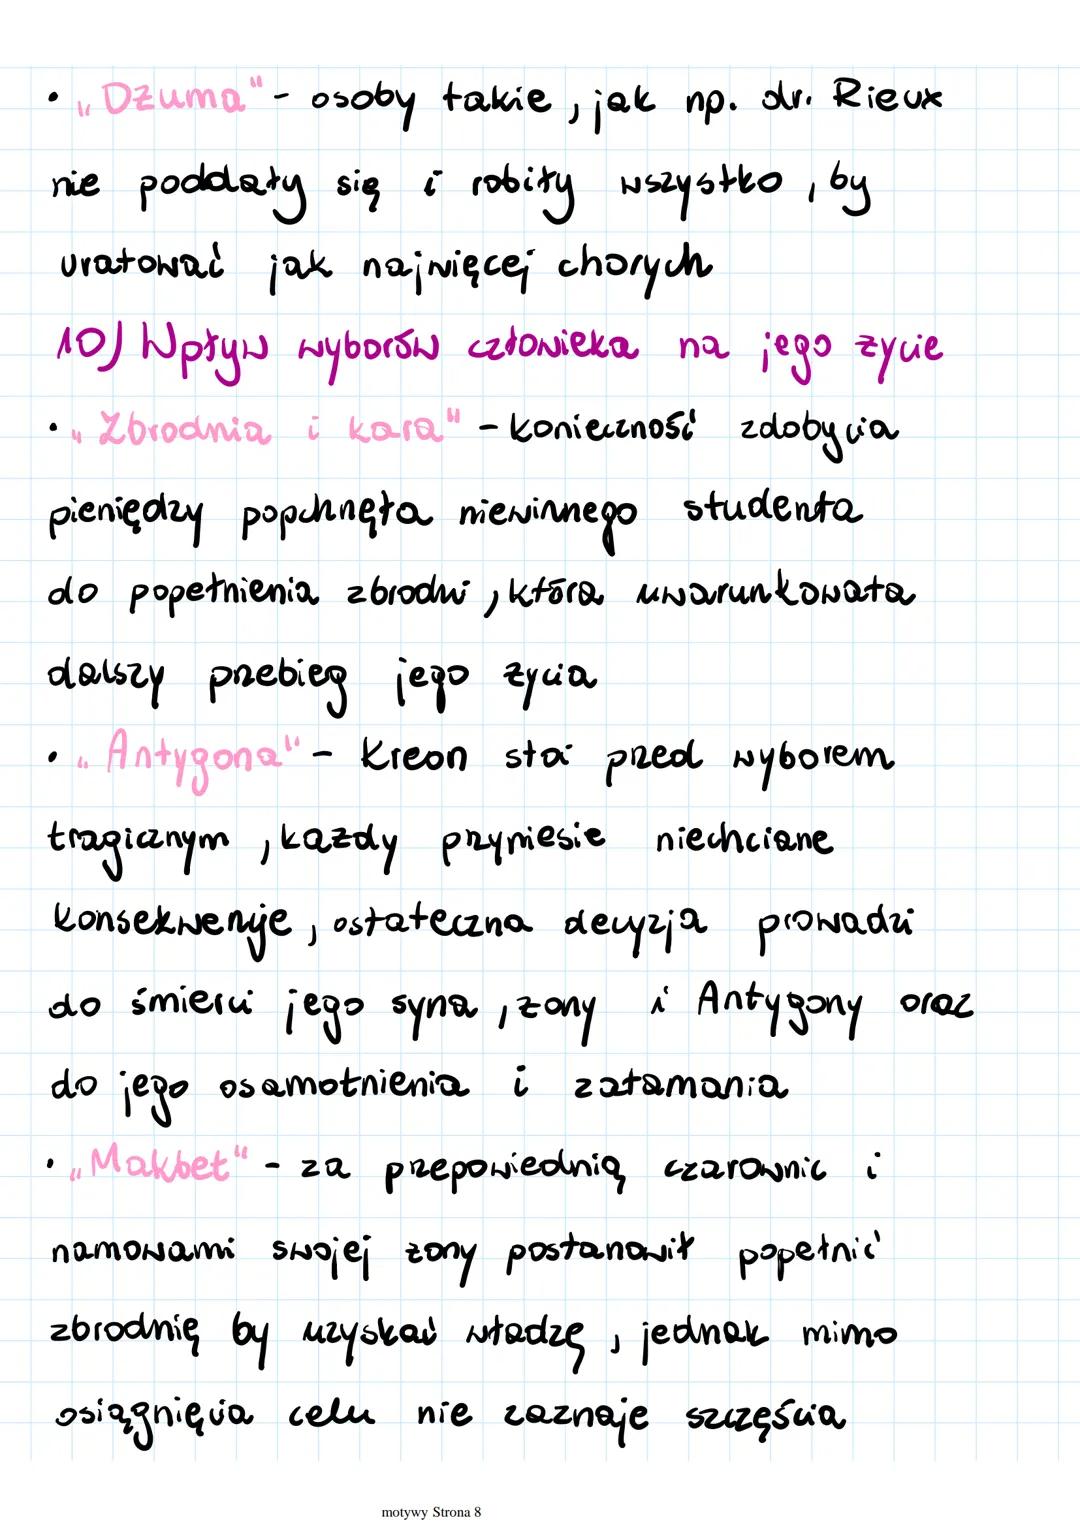 • „Dżuma" - osoby takie, jak np. dr. Rieux
nie poddały się i robiły wszystko, by
uratować jak najwięcej chorych
10) Wpływ wyborów człowieka na jego życie
• „Zbrodnia i kara" - konieczność zdobycia
pieniędzy popchnęła niewinnego studenta
do popełnienia zbrodni, która uwarunkowała
dalszy przebieg jego życia
• „Antygona" - Kreon stoi przed wyborem
tragicznym, każdy przyniesie niechciane
konsekwencje, ostateczna decyzja prowadzi
do śmierci jego syna, żony i Antygony oraz
do jego osamotnienia i załamania
• „Makbet" - za przepowiednią czarownic i
namowami swojej żony postanowił popełnić
zbrodnię by uzyskać władzę, jednak mimo
osiągnięcia celu nie zaznaje szczęścia
motywy Strona 8